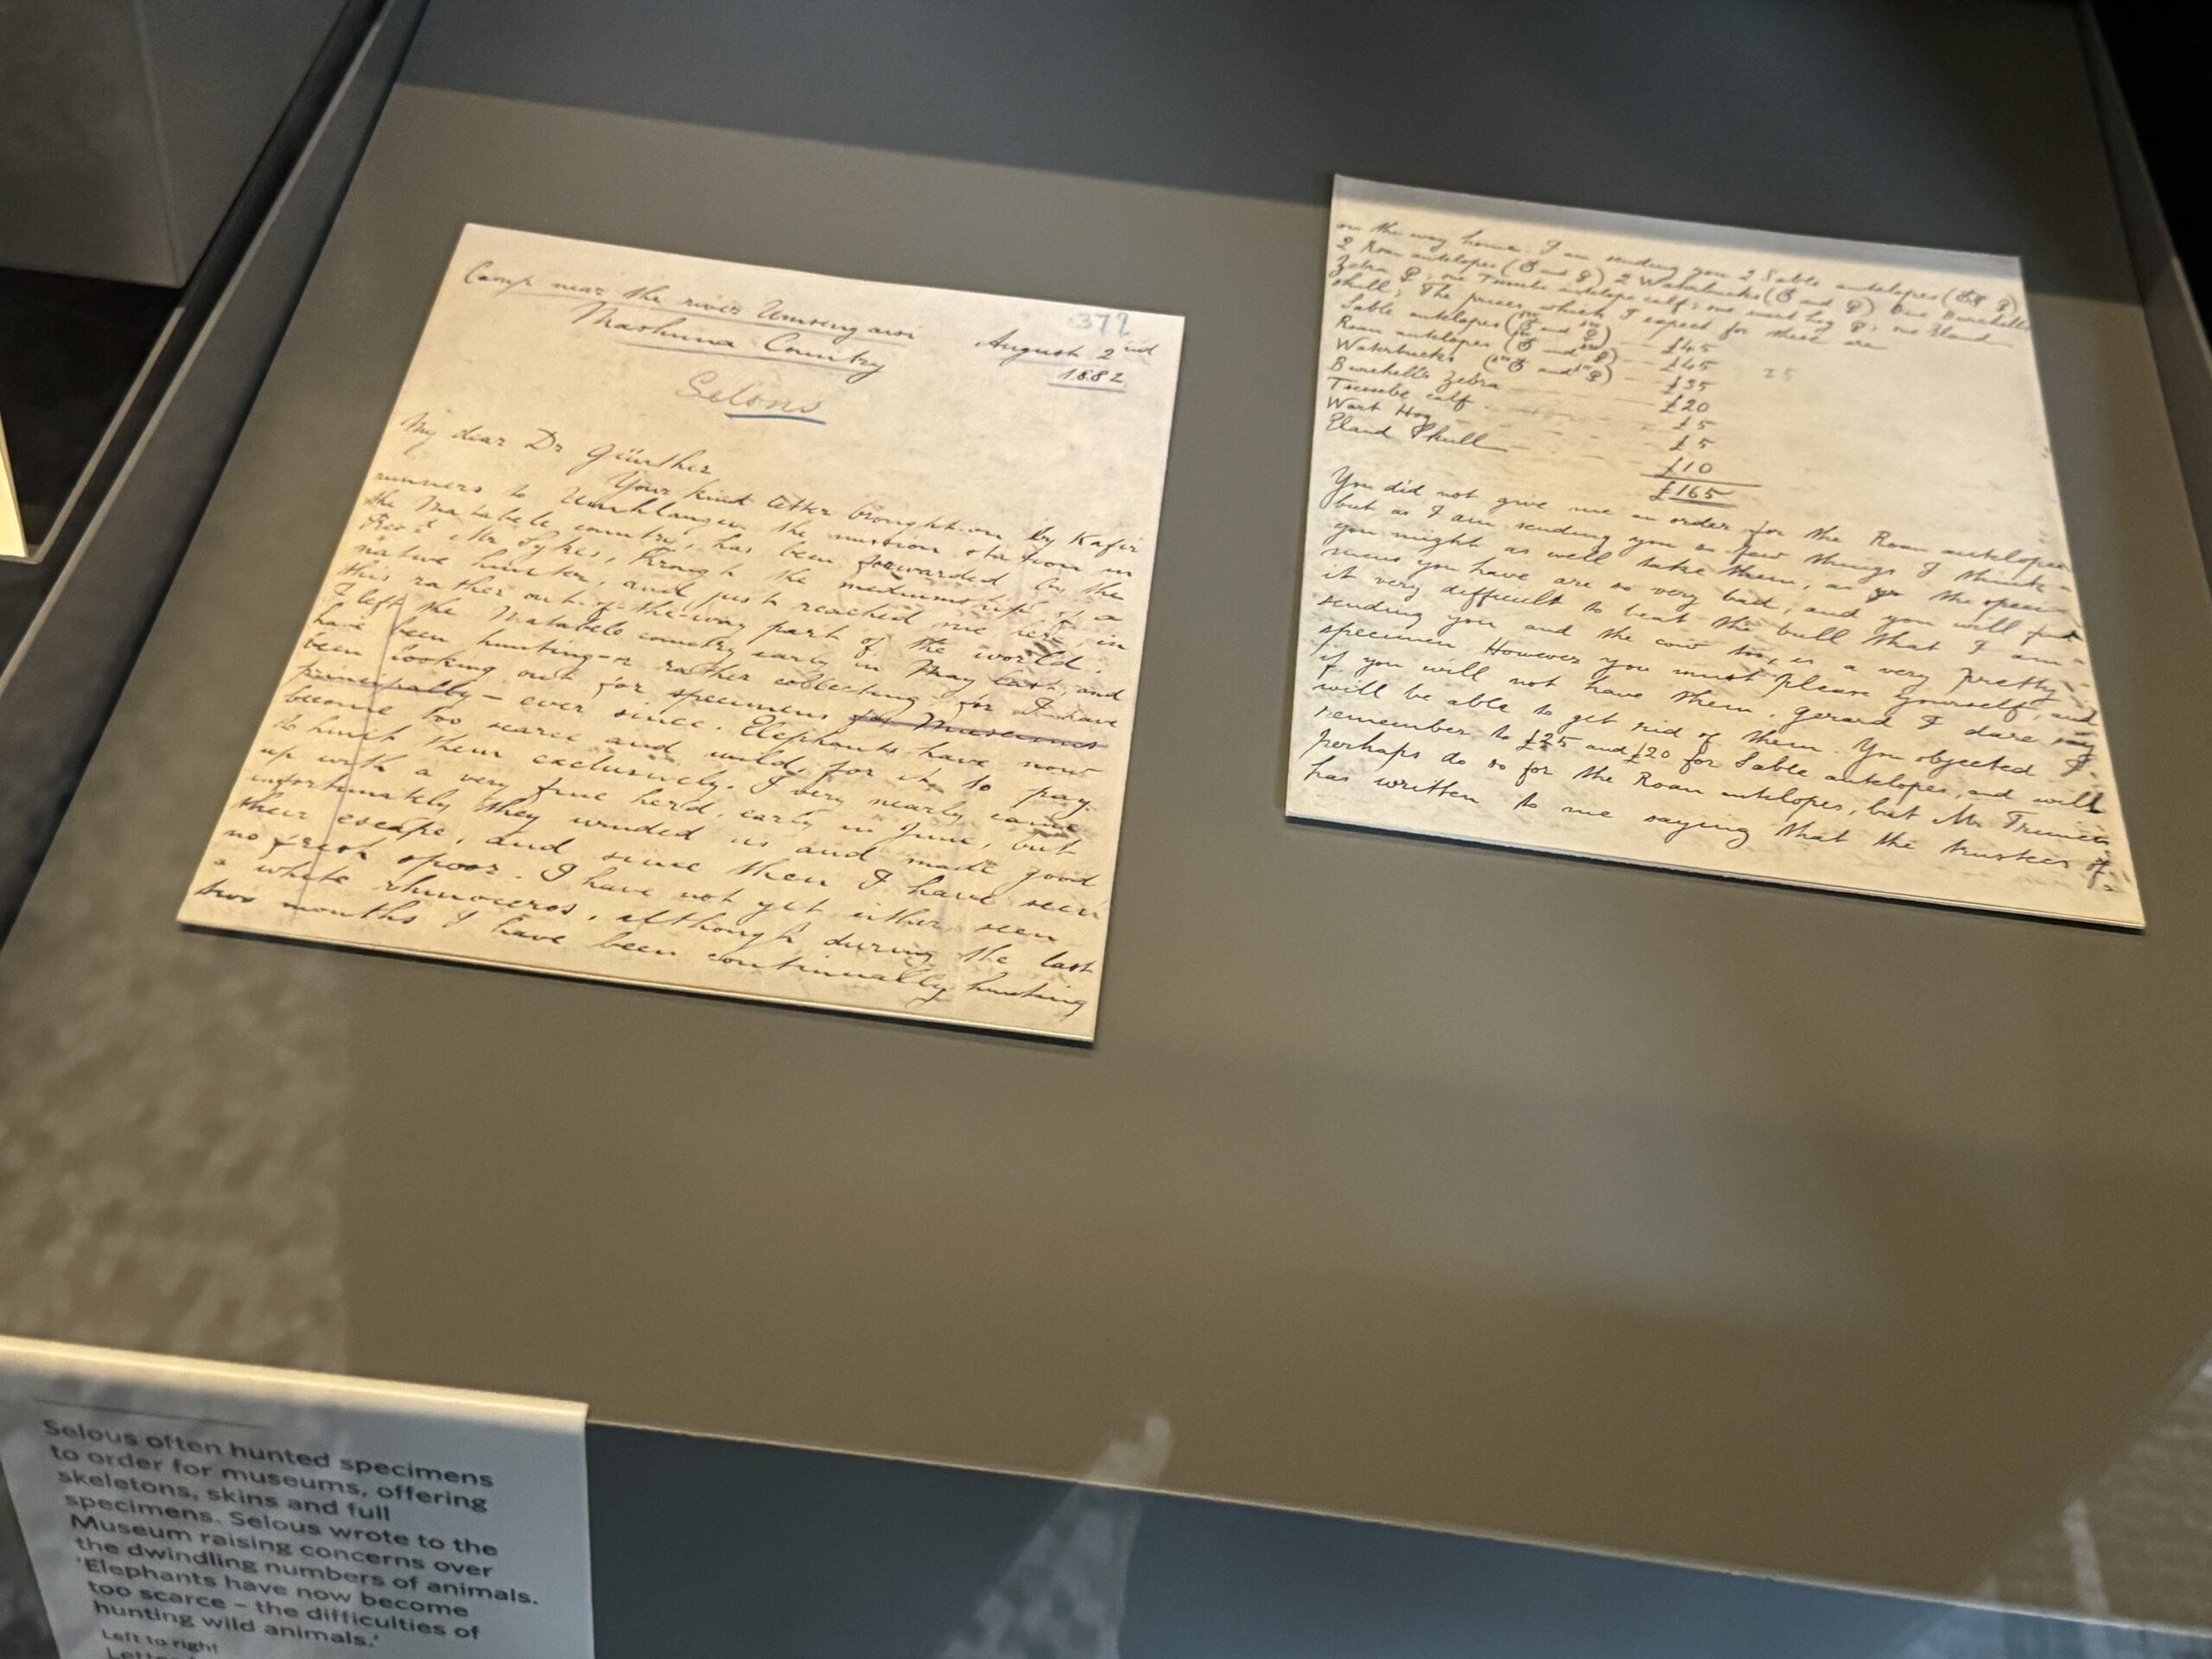 372
Camp near the river Umsengaisi
Mashuna Country
August 2nd
1882
Selous
My dear Dr Günther
Your kind letter brought on by Kafir
runners to Umhlangen the mission station in
the Matabele country, has been forwarded by the
Revd Mr Sykes, through the mediumship of a
native hunter, and just reached me here, in
this rather out-of-the-way part of the world.
I left the Matabele country early in May last, and
have been hunting - or rather collecting, for I have
been looking out for specimens for Museums
principally - ever since. Elephants have now
become too scarce and wild, for it to pay
to hunt them exclusively. I very nearly came
up with a very fine herd, early in June, but
unfortunately they winded us and made good
their escape, and since then I have seen
no fresh spoor. I have not yet either seen
a white rhinoceros, although during the last
two months I have been continually hunting
on the way home. I am sending you 2 Sable antelopes (♂ ♀)
2 Roan antelopes (♂ and ♀) 2 Waterbucks (♂ and ♀) One Burchell's
Zebra ♀, one Tsessebe antelope calf; one wart hog ♀; one Eland
skull; The prices which I expect for these are
Sable antelopes (♂ and ♀) — £45
Roan antelopes (♂ and ♀) — £45 25
Waterbucks (♂ and ♀) — £35
Burchell's Zebra — £20
calf — £5
Wart Hog - - - £5
Eland Skull — £10
£165
You did not give me an order for the Roan antelopes
but as I am sending you so few things I think
you might as well take them, as the speci-
mens you have are so very bad, and you will find
it very difficult to beat the bull that I am
sending you and the cow too, is a very pretty
specimen. However you must please yourself, and
if you will not have them, Gerard I dare say
will be able to get rid of them. You objected I
remember to £25 and £20 for Sable antelopes, and will
perhaps do so for the Roan antelopes, but Mr Trimen
has written to me saying that the trustees of
Selous often hunted specimens
to order for museums, offering
skeletons, skins and full
specimens. Selous wrote to the
Museum raising concerns over
the dwindling numbers of animals.
'Elephants have now become
too scarce – the difficulties of
hunting wild animals.'
Left to right